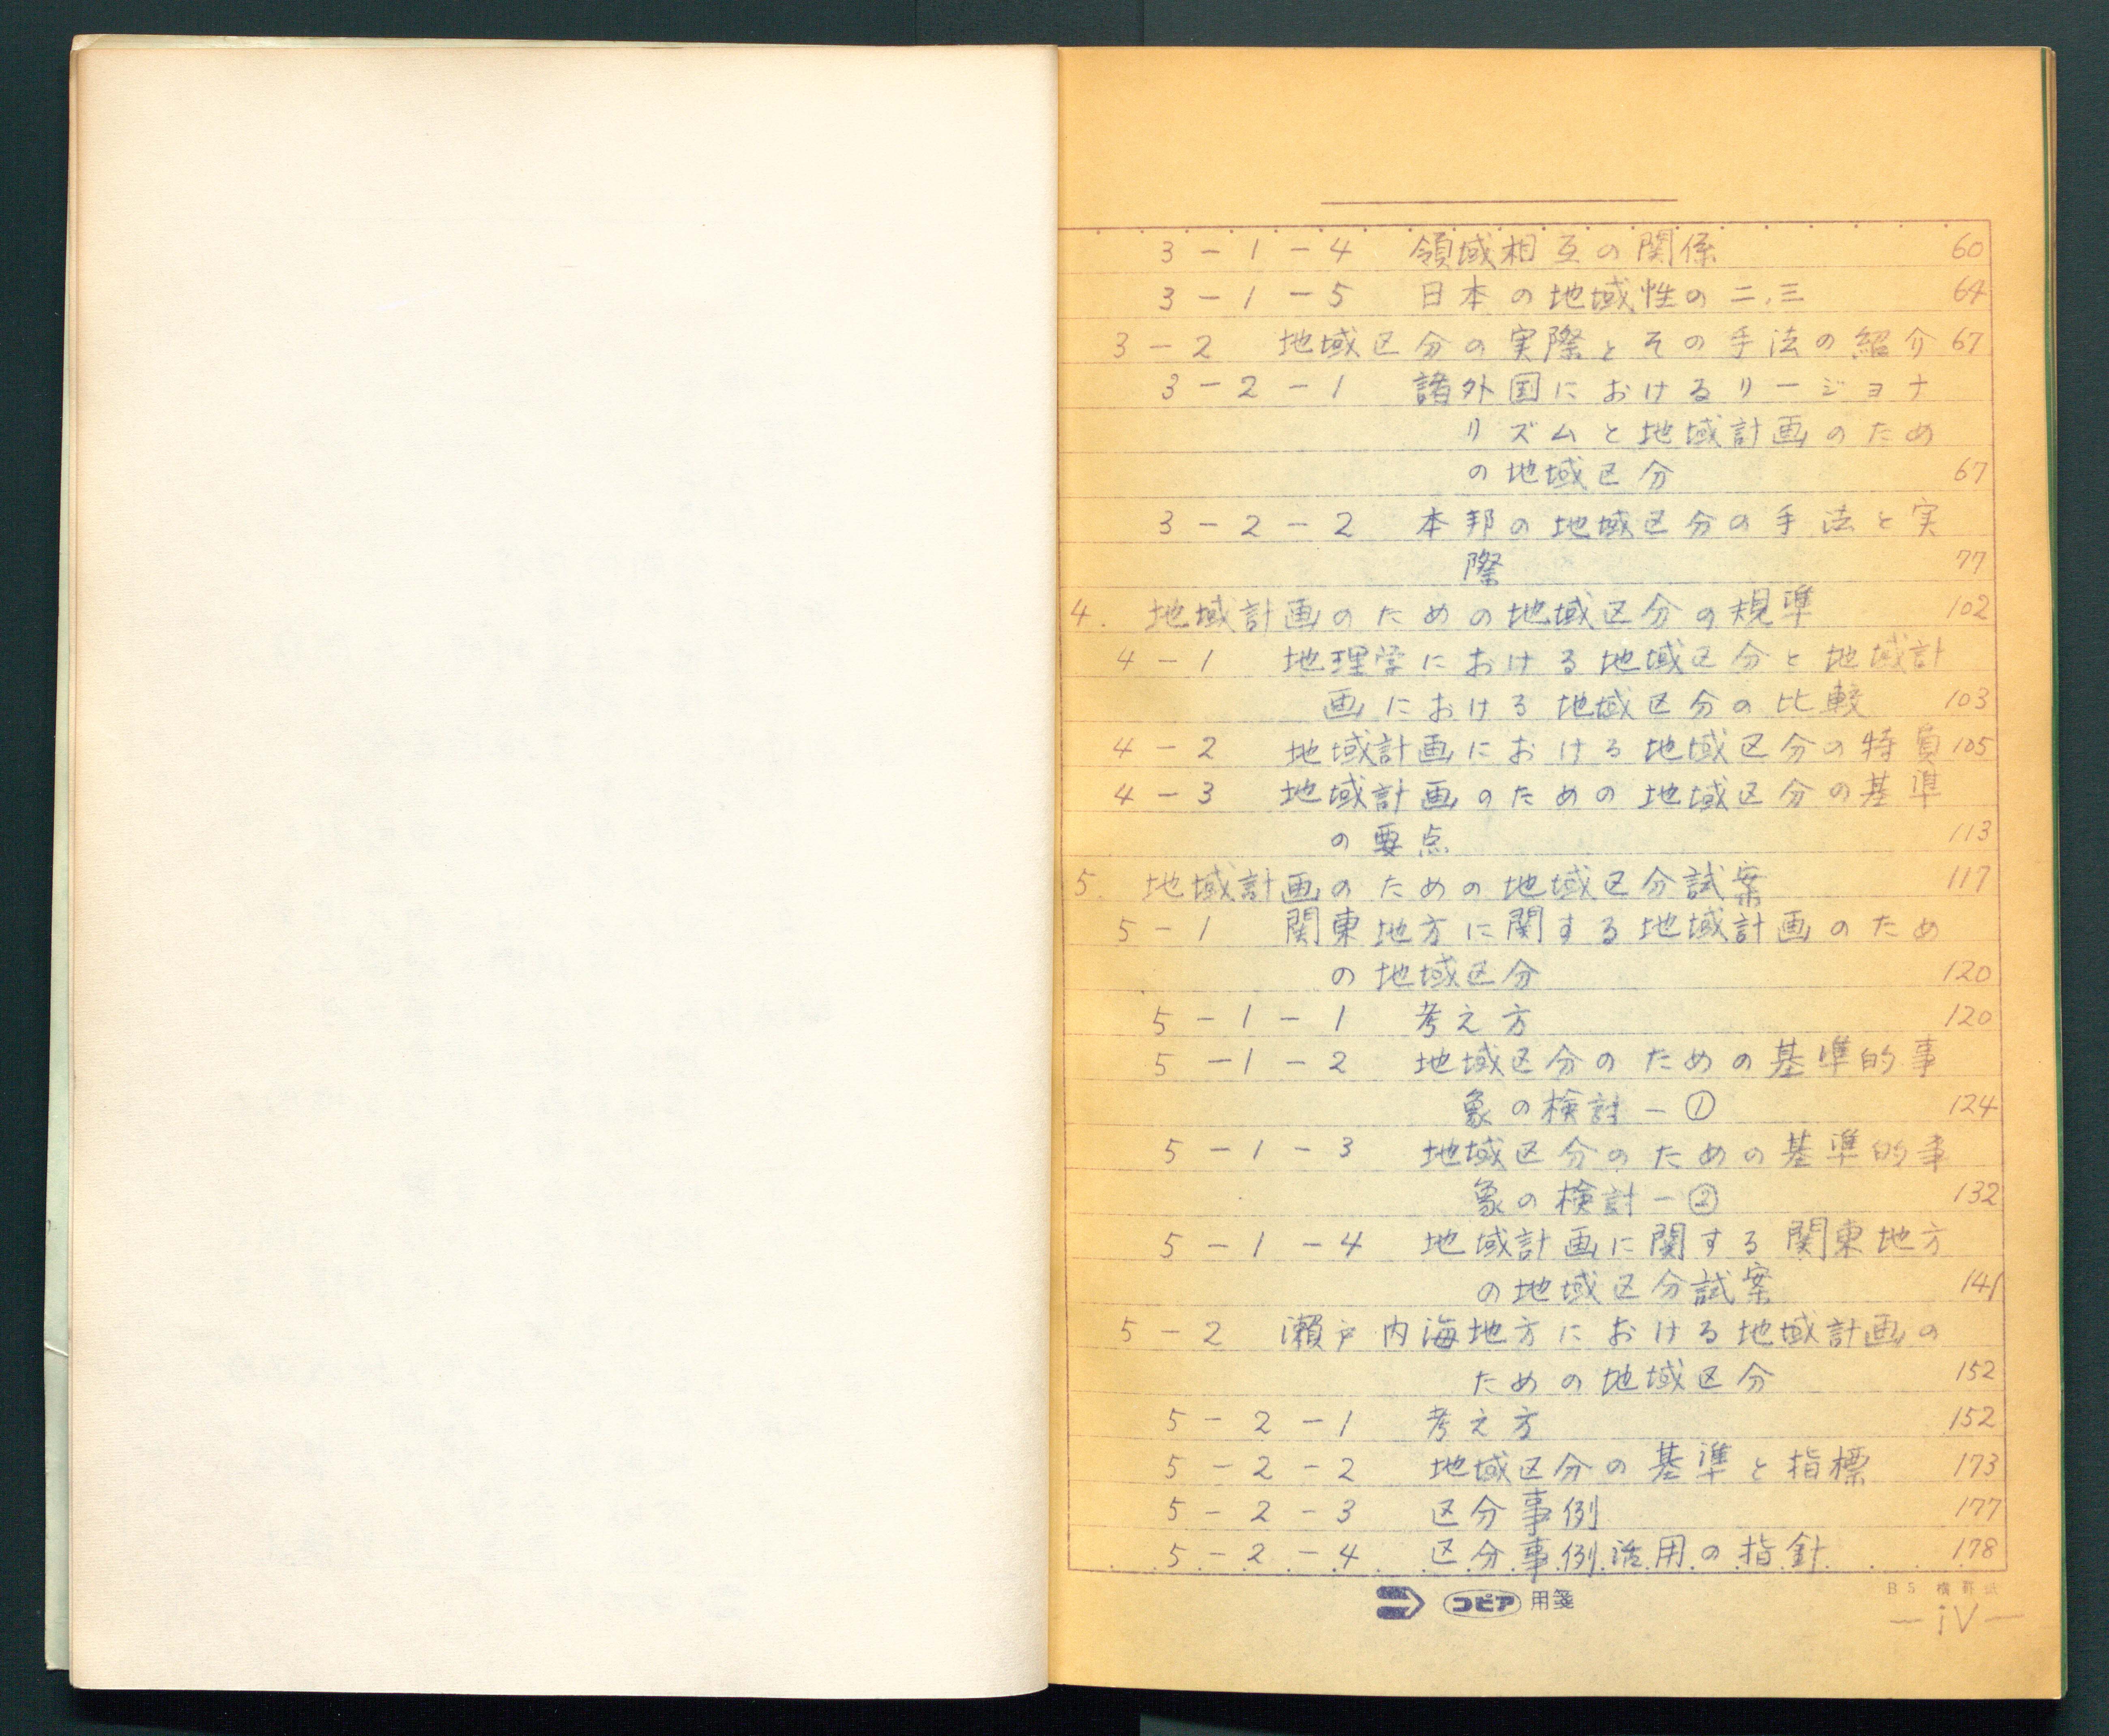 3-1-4 領域相互の関係 60
3-1-5 日本の地域性の二、三 64
3-2 地域区分の実際とその手法の紹介 67
3-2-1 諸外国におけるリージョナ
リズムと地域計画のため
の地域区分 67
3-2-2 本邦の地域区分の手法と実
際 77
4. 地域計画のための地域区分の規準 102
4-1 地理学における地域区分と地域計
画における地域区分の比較 103
4-2 地域計画における地域区分の特質 105
4-3 地域計画のための地域区分の基準
の要点 113
5. 地域計画のための地域区分試案 117
5-1 関東地方に関する地域計画のため
の地域区分 120
5-1-1 考え方 120
5-1-2 地域区分のための基準的事
象の検討-① 124
5-1-3 地域区分のための基準的事
象の検討-② 132
5-1-4 地域計画に関する関東地方
の地域区分試案 141
5-2 瀬戸内海地方における地域計画の
ための地域区分 152
5-2-1 考え方 152
5-2-2 地域区分の基準と指標 173
5-2-3 区分事例 177
5-2-4 区分事例活用の指針 178
コピア 用箋
B5 横罫紙
-iv-